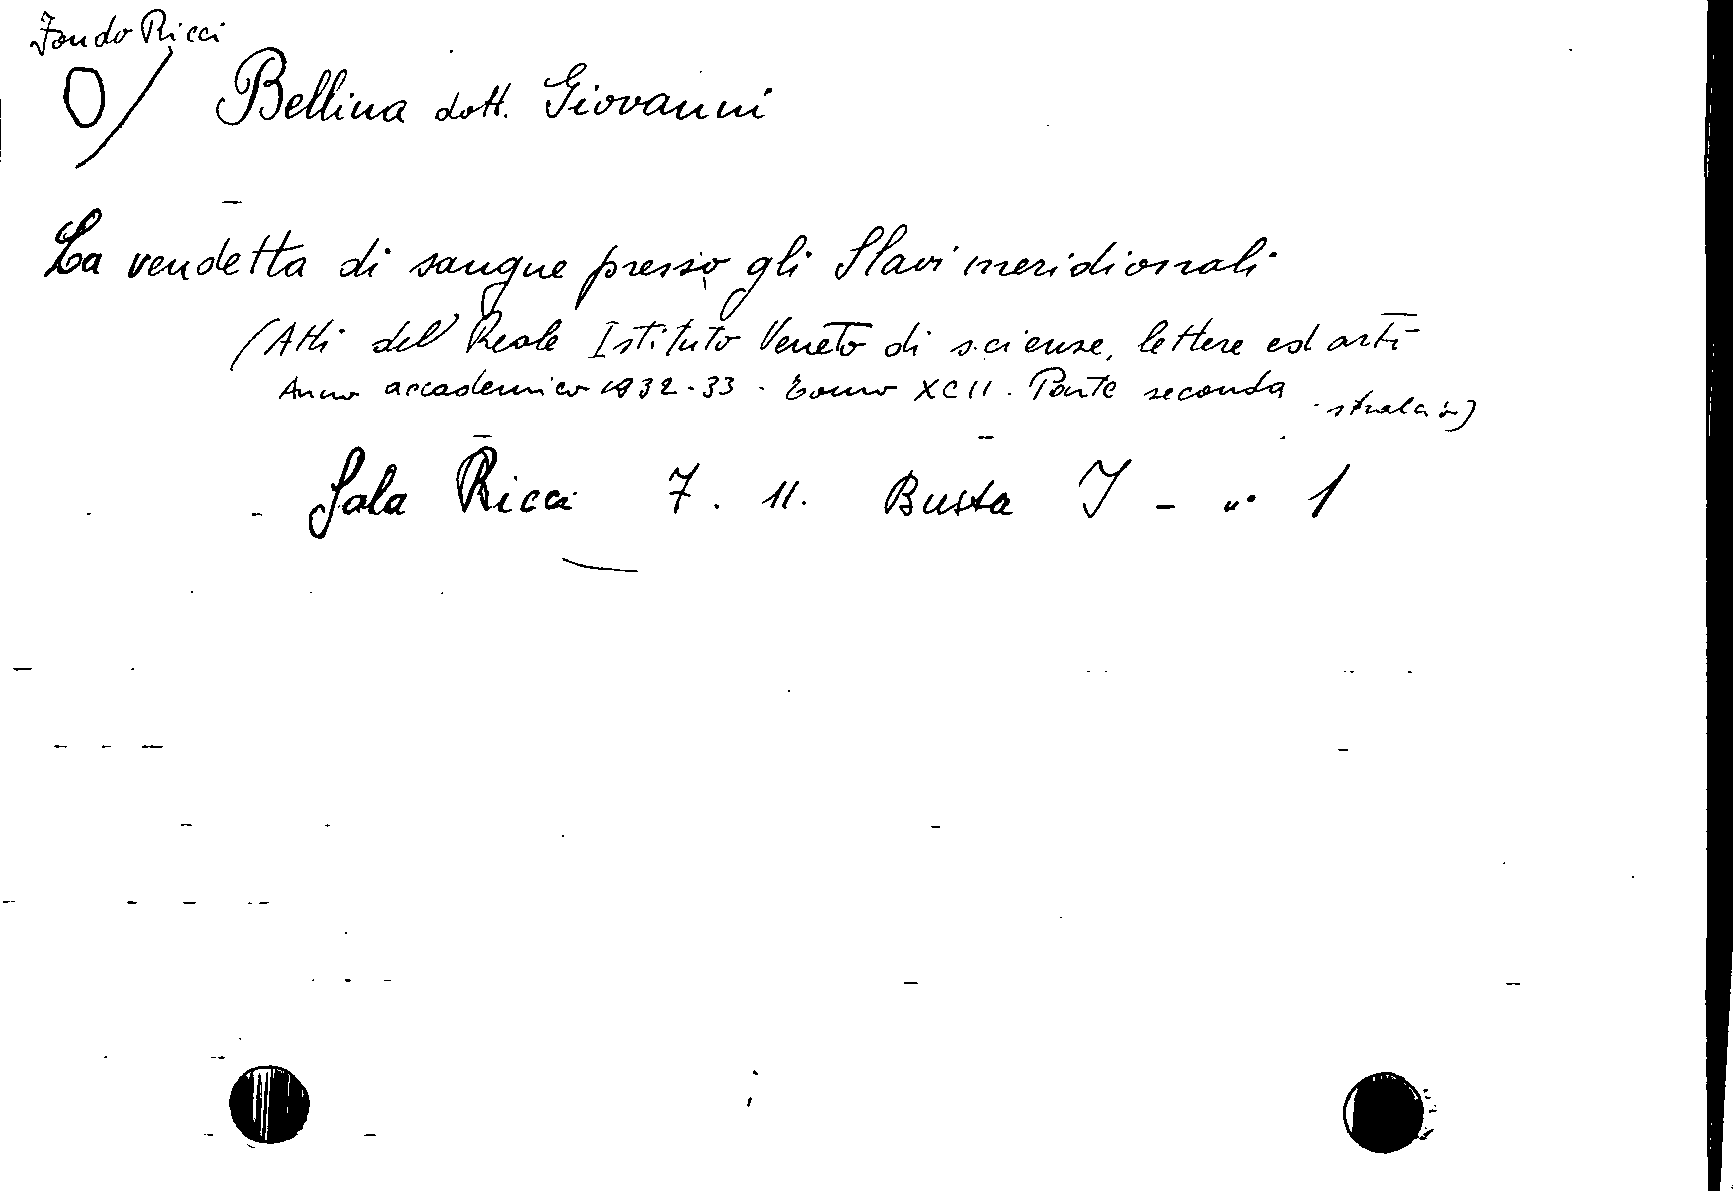 Fondo Ricci
O/ Bellina dott. Giovanni
La vendetta di sangue presso gli Slavi meridionali
(Atti dell' Reale Istituto Veneto di scienze, lettere ed arti
Anno accademico 1932-33. Tomo XCII. Parte seconda. stralcio)
Sala Ricci 7. 11. Busta I - n. 1